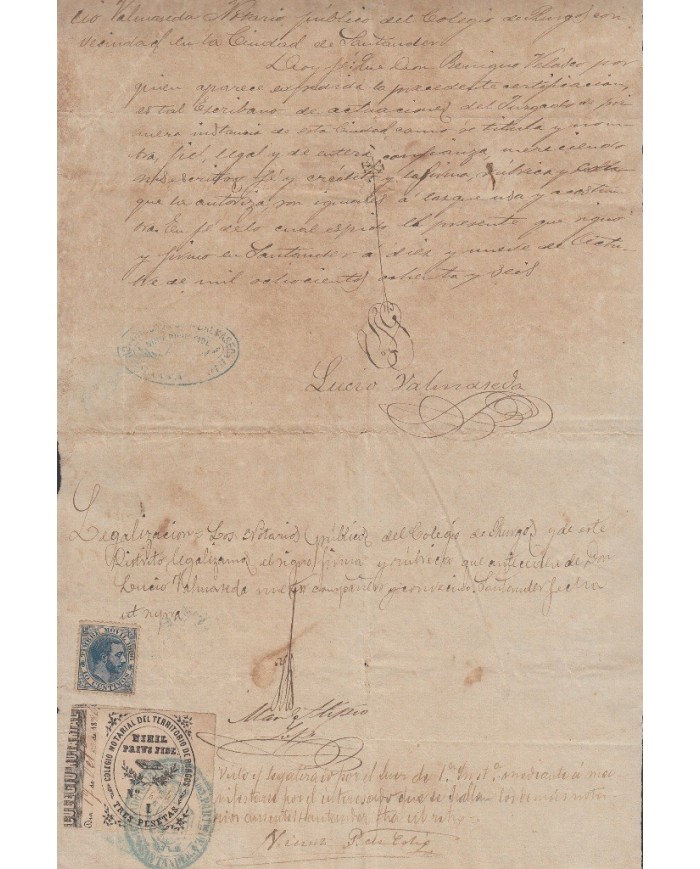 cio Valmaseda Notario público del Colegio de Burgos, con
vecindad en la Ciudad de Santander
Doy fé: Que Don Benigno Velasco por
quien aparece expedida la precedente certificacion,
es tal Escribano de actuaciones del Juzgado de pri
mera instancia de esta Ciudad como se titula y nom
bra, fiel, legal y de entera confianza, mereciendo
sus escritos fé y crédito y la firma, rúbrica y
que la autoriza son iguales a las que usa y acostum
bra. En fé de lo cual espido la presente que signo
y firmo en Santander a diez y nueve de Octu
bre de mil ochocientos ochenta y seis
Lucio Valmaseda
Legalizacion. Los Notarios públicos del Colegio de Burgos y de este
Distrito, legalizamos el signo, firma y rúbrica que anteceden de Don
Lucio Valmaseda nuestro compañero y convecino. Santander fecha
ut supra
TIMBRE MOVIL 1886
10 CENTIMOS
COLEGIO NOTARIAL DEL TERRITORIO DE BURGOS
NIHIL
PRIUS FIDE
Nº 1
TRES PESETAS
Visto y legalizado por el Juez de 1ª Instª
por el interesado que se hallan los demás nota
rios ausentes Santander fha ut retro
Vicente P. de Celis